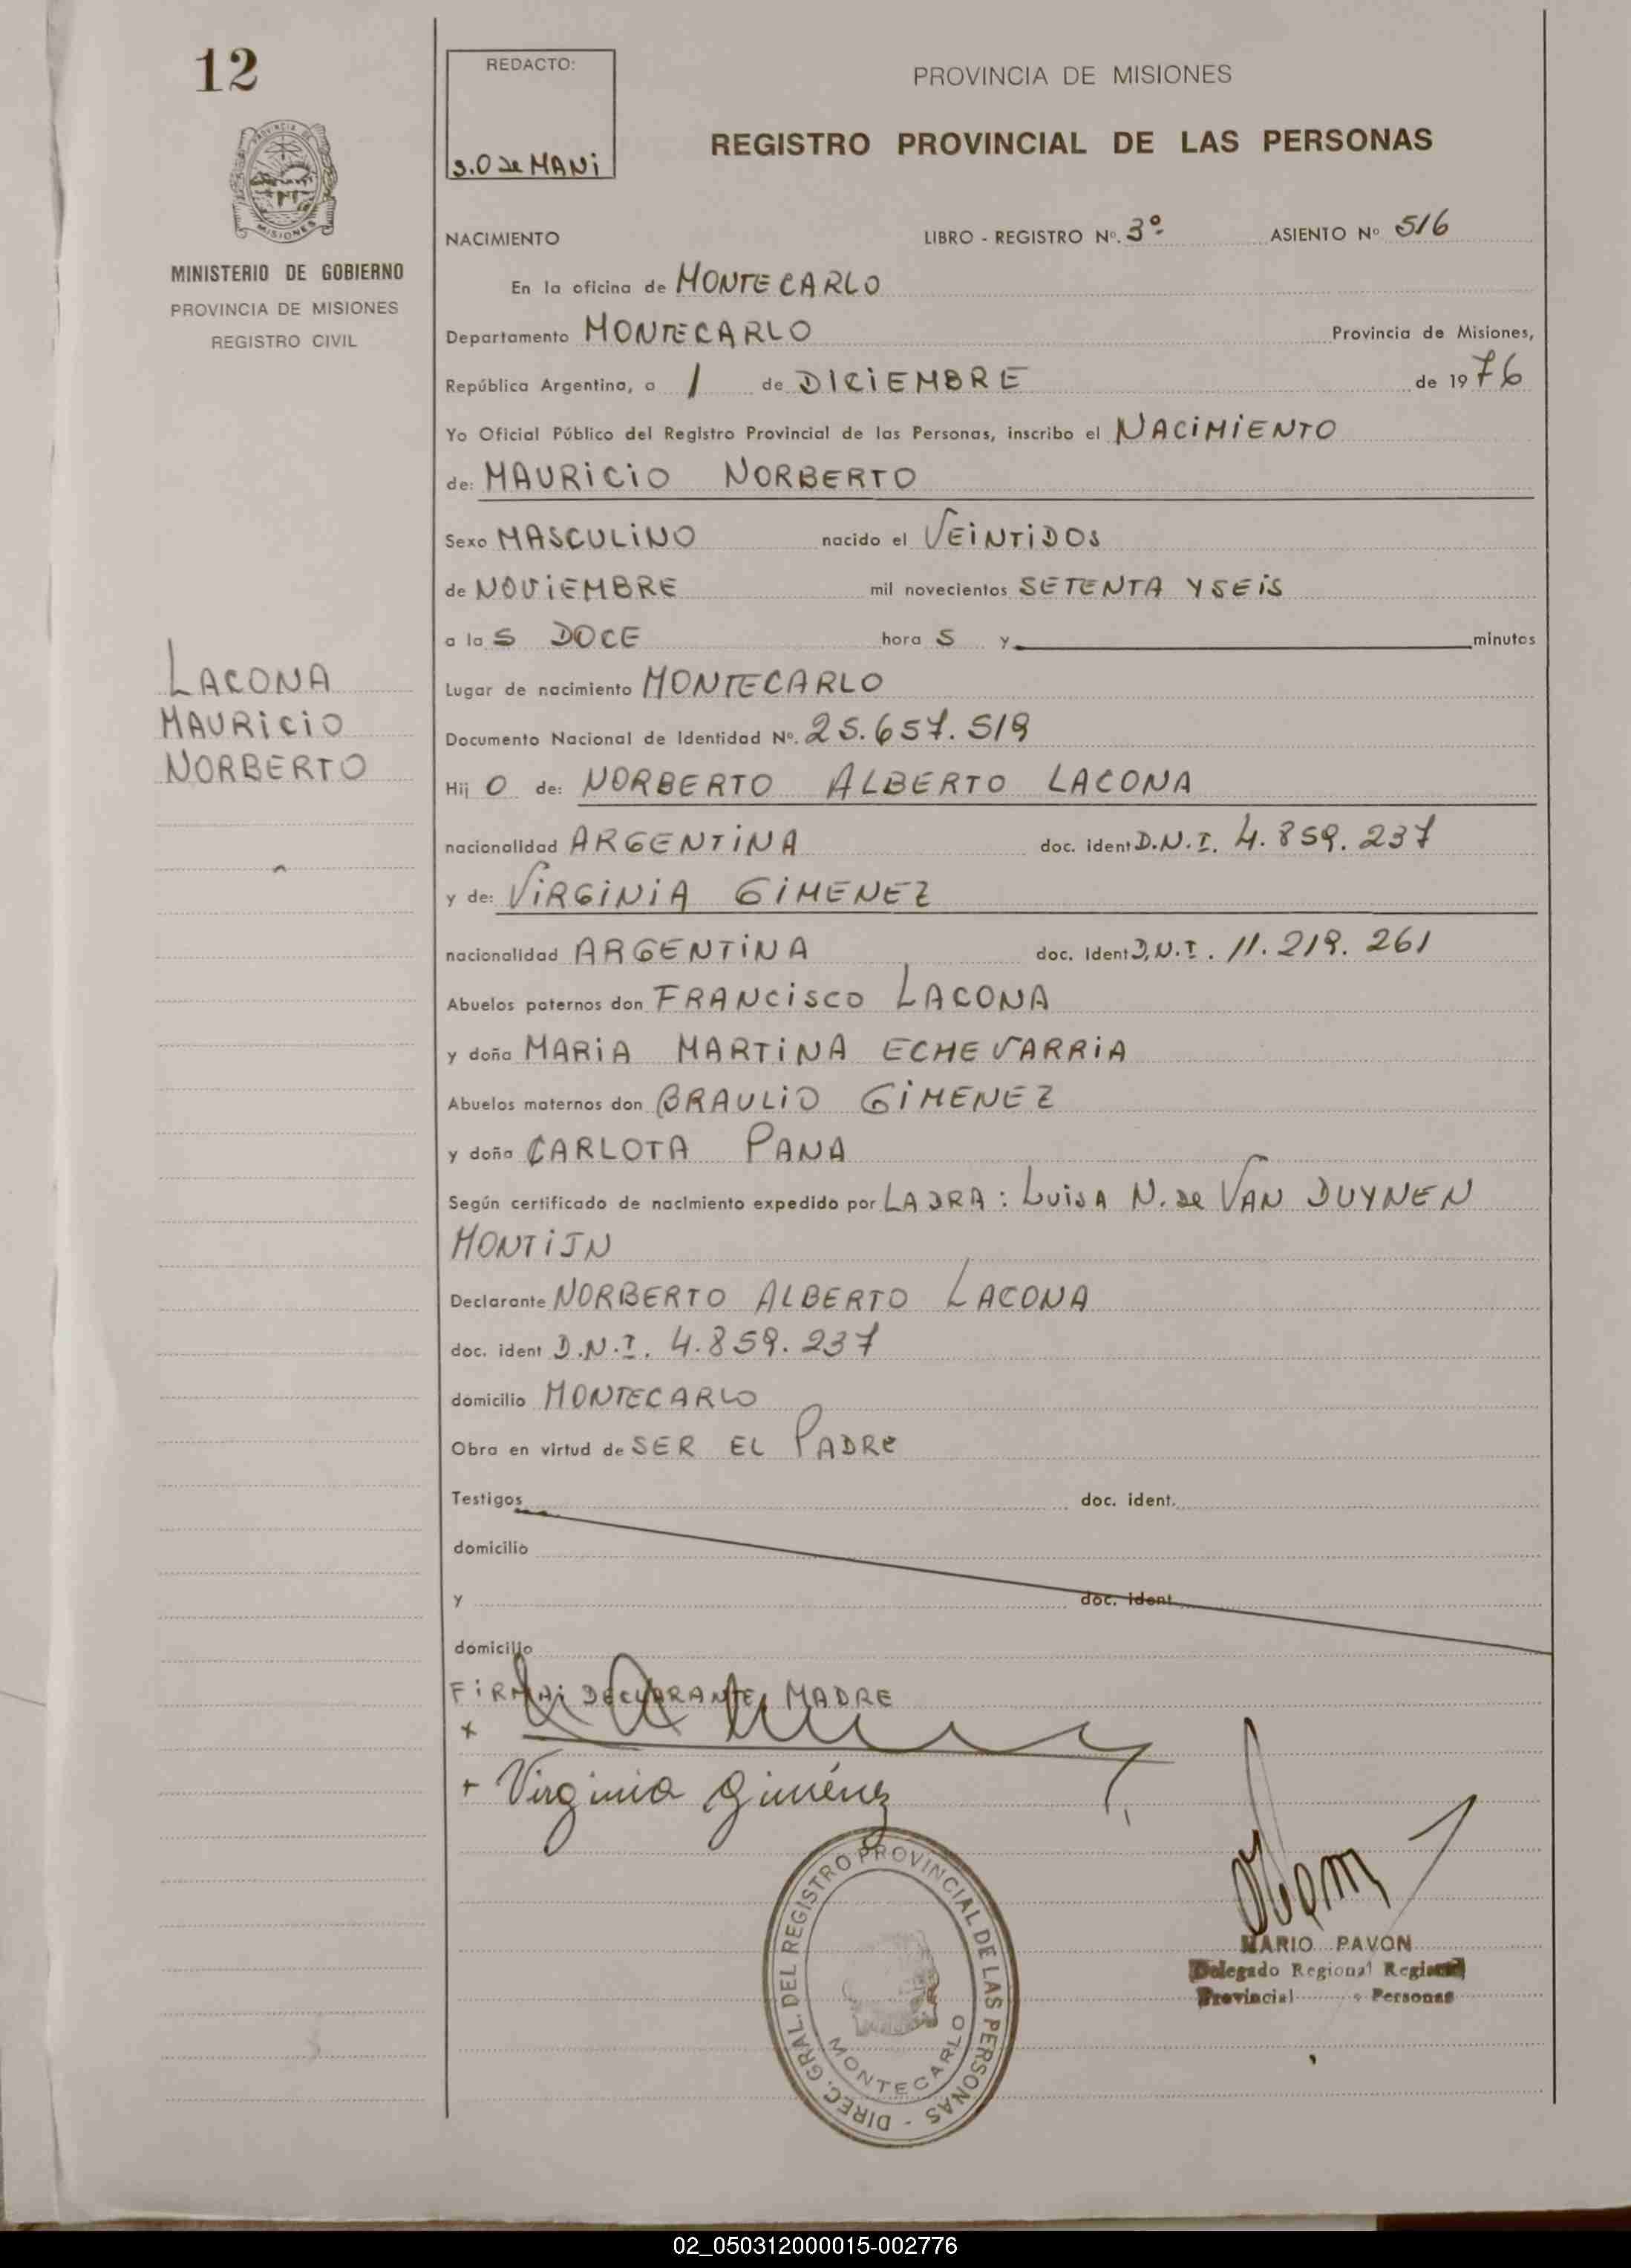 12
REDACTO:
S.O de MANi
PROVINCIA DE MISIONES
REGISTRO PROVINCIAL DE LAS PERSONAS
PROVINCIA DE
MISIONES
MINISTERIO DE GOBIERNO
PROVINCIA DE MISIONES
REGISTRO CIVIL
NACIMIENTO LIBRO - REGISTRO Nº. 3º ASIENTO Nº 516
En la oficina de MONTECARLO
Departamento MONTECARLO Provincia de Misiones,
República Argentina, a 1 de DICiEMBRE de 1976
Yo Oficial Público del Registro Provincial de las Personas, inscribo el NACiMiENTO
de: MAURiCiO NORBERTO
Sexo MASCULiNO nacido el VEiNTiDOS
de NOViEMBRE mil novecientos SETENTA Y SEiS
a las DOCE horas y minutos
Lugar de nacimiento MONTECARLO
Documento Nacional de Identidad Nº. 25.657.519
LACONA
MAURiCiO
NORBERTO
Hijo de: NORBERTO ALBERTO LACONA
nacionalidad ARGENTiNA doc. ident D.N.I. 4.859.237
y de: ViRGiNiA GiMENEZ
nacionalidad ARGENTiNA doc. ident D.N.I. 11.219.261
Abuelos paternos don FRANCiSCO LACONA
y doña MARiA MARTiNA ECHEVARRiA
Abuelos maternos don BRAULiO GiMENEZ
y doña CARLOTA PANA
Según certificado de nacimiento expedido por LA DRA: LUiSA N. de VAN DUYNEN
MONTiJN
Declarante NORBERTO ALBERTO LACONA
doc. ident D.N.I. 4.859.237
domicilio MONTECARLO
Obra en virtud de SER EL PADRE
Testigos doc. ident.
domicilio
y doc. ident.
domicilio
FiRMAi DECLARANTE, MADRE
x
+ Virginia Giménez
DIREC. GRAL. DEL REGISTRO PROVINCIAL DE LAS PERSONAS -
MONTECARLO
MARIO PAVON
Delegado Regional Registro
Provincial Personas
02_050312000015-002776